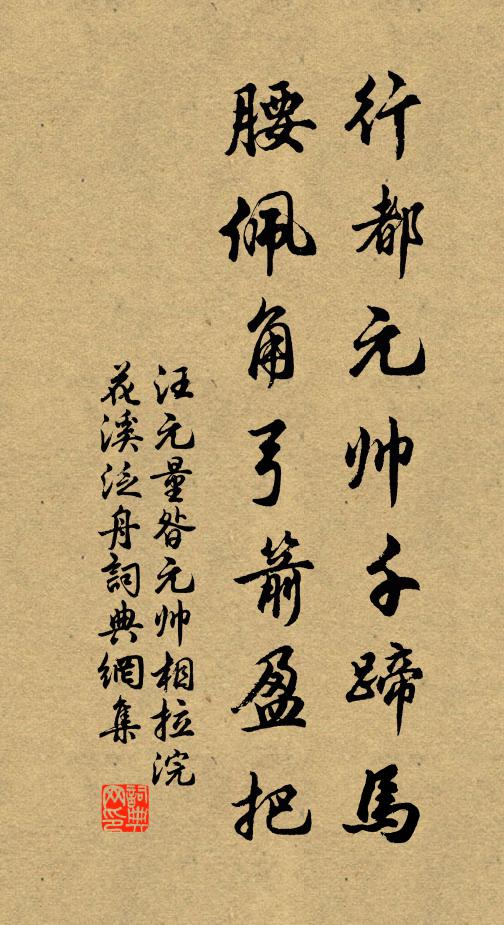 行都元帅千蹄馬
腰佩角弓箭盈把
汪元量昝元帅相拉浣
花溪泛舟詞典網集
詞典網